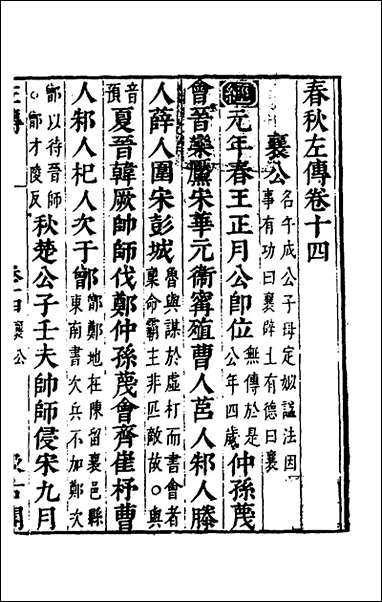 春秋左傳卷十四
襄公 名午成公子母定姒謚法因事有功曰襄辟土有德曰襄
經元年春王正月公即位 無傳於是公年四歲 仲孫蔑
會晉欒黶宋華元衛甯殖曹人莒人邾人滕
人薛人圍宋彭城 魯與謀於虛打而書會者稟命霸主非匹敵故○與
音預 夏晉韓厥帥師伐鄭仲孫蔑會齊崔杼曹
人邾人杞人次于鄫 鄫鄭地在陳留襄邑縣東南書次兵不加鄭次
鄫以待晉師○鄫才陵反 秋楚公子壬夫帥師侵宋九月